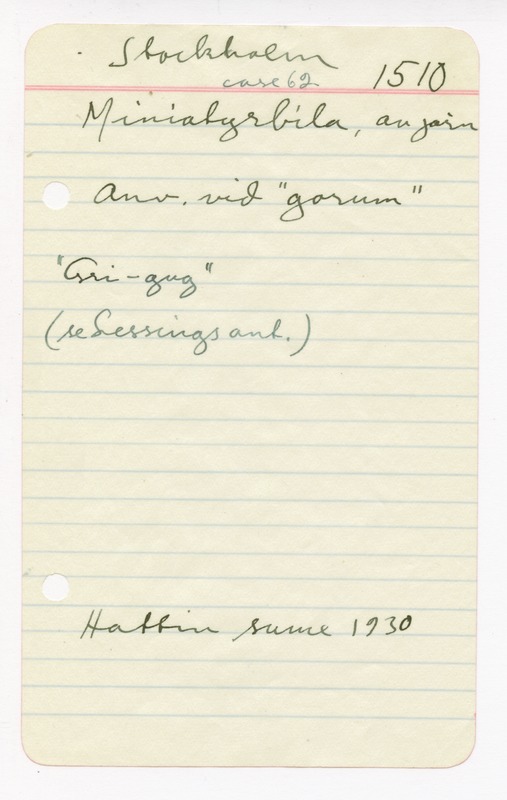 Stockholm
case 62 1510
Miniatyrbila, av järn
Anv. vid "gorum"
"Gri-gug"
(se Lessings ant.)
Hattin sume 1930